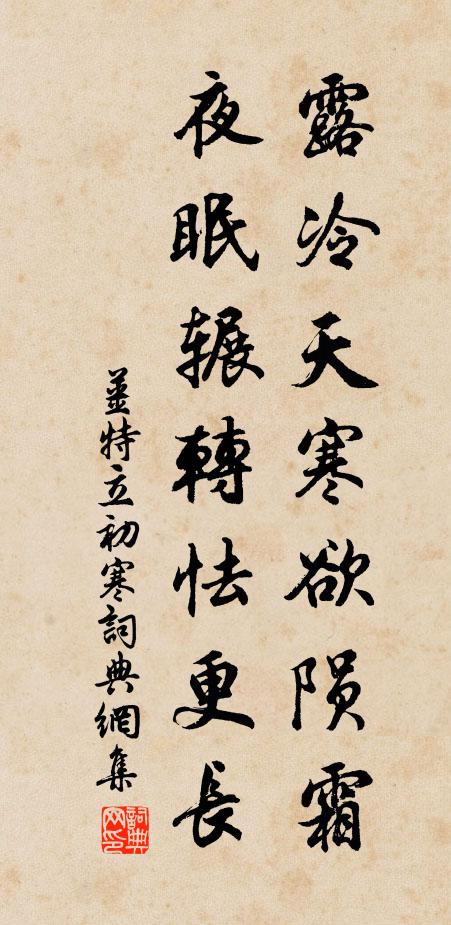 露冷天寒欲陨霜
夜眠辗轉怯更長
姜特立初寒詞典網集
詞典网印